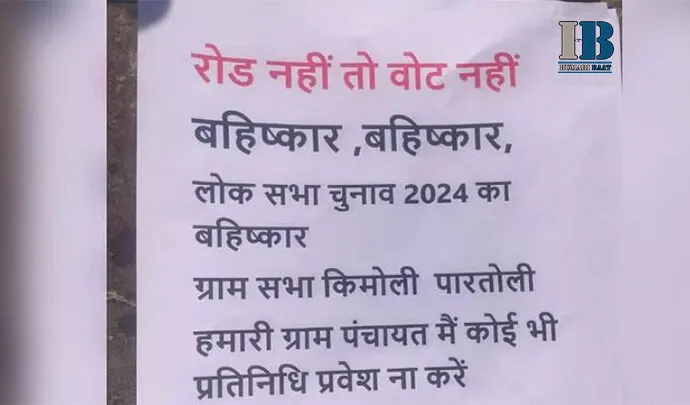 IB
रोड नहीं तो वोट नहीं
बहिष्कार ,बहिष्कार,
लोक सभा चुनाव 2024 का
बहिष्कार
ग्राम सभा किमोली पारतोली
हमारी ग्राम पंचायत मैं कोई भी
प्रतिनिधि प्रवेश ना करें